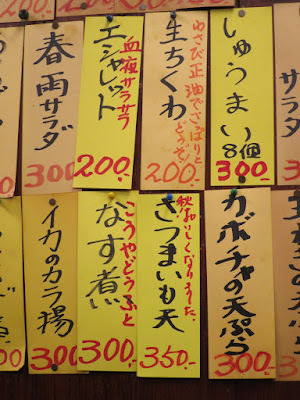 200.
200
しゅうまい
8個
300
わさび正油でさっぱりと
どうぞ!
生ちくわ
200.-
血液サラサラ
エシャレット
200.-
春雨サラダ
300
カボチャの天ぷら
300.-
秋おいしくなりました。
さつまいも天
350.-
こうやどうふと
なす煮
300.-
イカのカラ揚
300